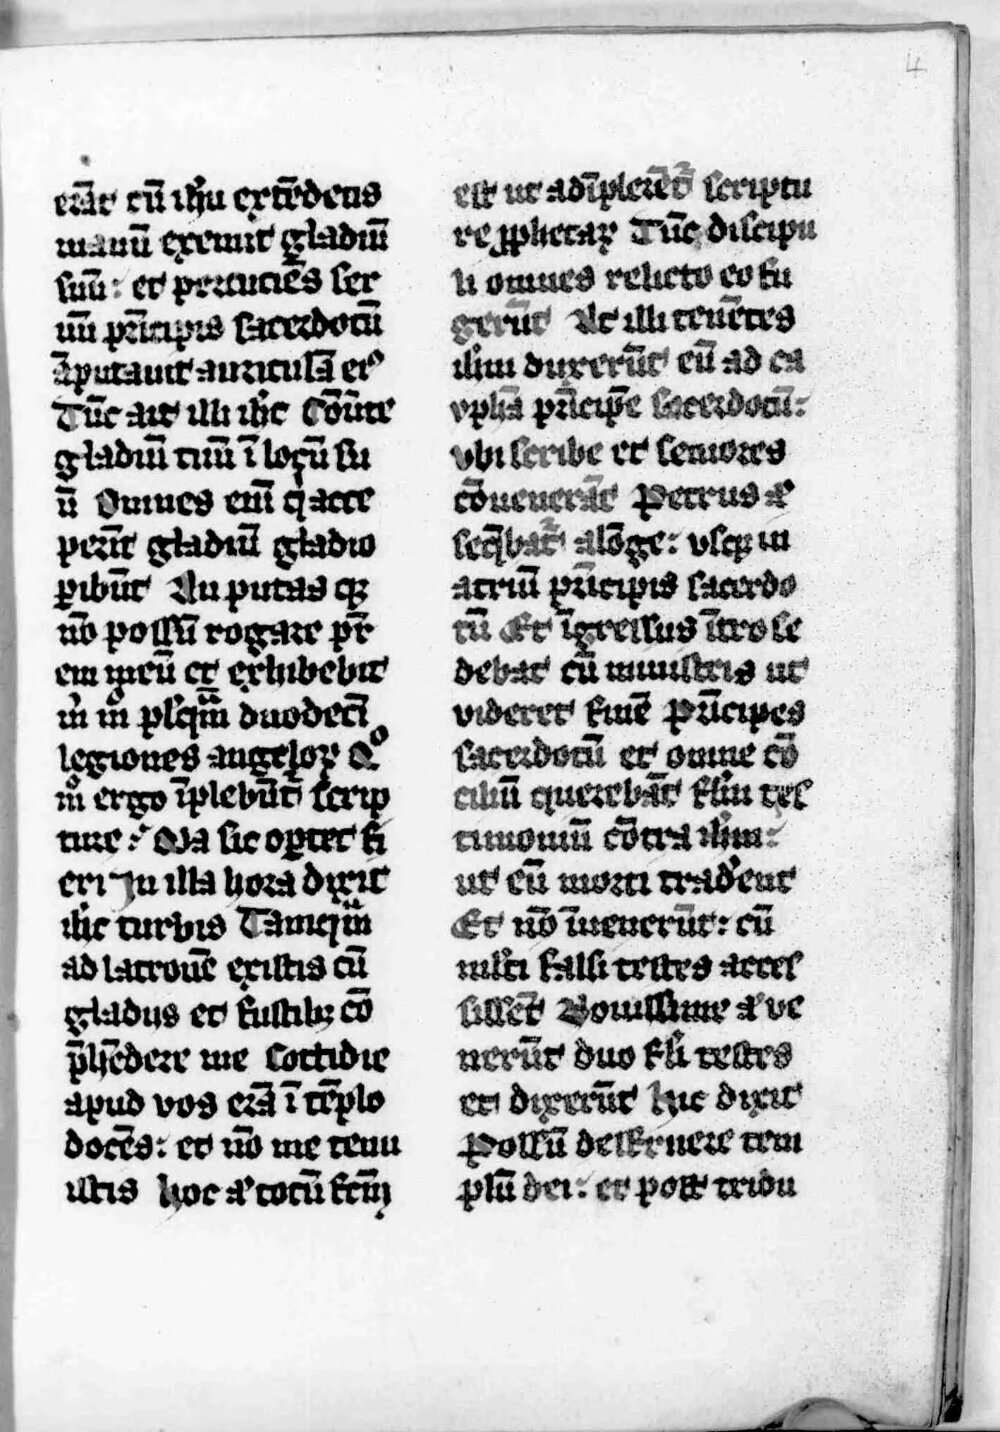 4
erāt cū ihū extēdens
manū exemit gladiū
suū: et percuciēs ser
uū prīcipis sacerdotū
āputauit auriculā eiꝰ
Tūc ait illi ihc Cōūte
gladiū tuū ī locū su
ū Omnes enī q̇ acce
perīt gladiū gladio
ꝑibūt An putas qꝫ
nō possū rogare pr̄
em meū et exhibebit
m̄ mº plˢqᵃ̄m duodecī
legiones angeloꝝ Qº
mº ergo īplebūt᷑ scrip
ture: Qꝛa sic oꝑtet fi
eri In illa hora dixit
ihc turbis Tamqᵃ̄m
ad latronē existis cū
gladiis et fustibꝫ cō
p̄hēdere me Cottidie
apud vos erā ī tēplo
docēs: et nō me tenu
istis Hoc aͤt totū fc̄m
est ut adīplerēt᷑ scriptu
re ꝓphetaꝝ Tūc discipu
li omnes relicto eo fu
gerūt At illi tenētes
ihm duxerūt eū ad ca
yphā prīcipē sacerdotū:
vbi scribe et seniores
cōuenerāt Petrus aͤt
seq̄bat᷑ alōge: vsqꝫ in
atriū prīcipis sacerdo
tū Et īgressus ītro se
debat cū ministris ut
videret finē Prīcipes
sacerdotū et omne cō
ciliū querebāt flˢm tes
timoniū cōtra ihm:
ut eū morti trad'ent
Et nō īuenerūt: cū
mlˢti falsi testes acces
sissēt Nouissime aͤt ve
nerūt duo flˢi testes
et dixerūt Hic dixit
Possū destruere tem
plū dei: et post tridu